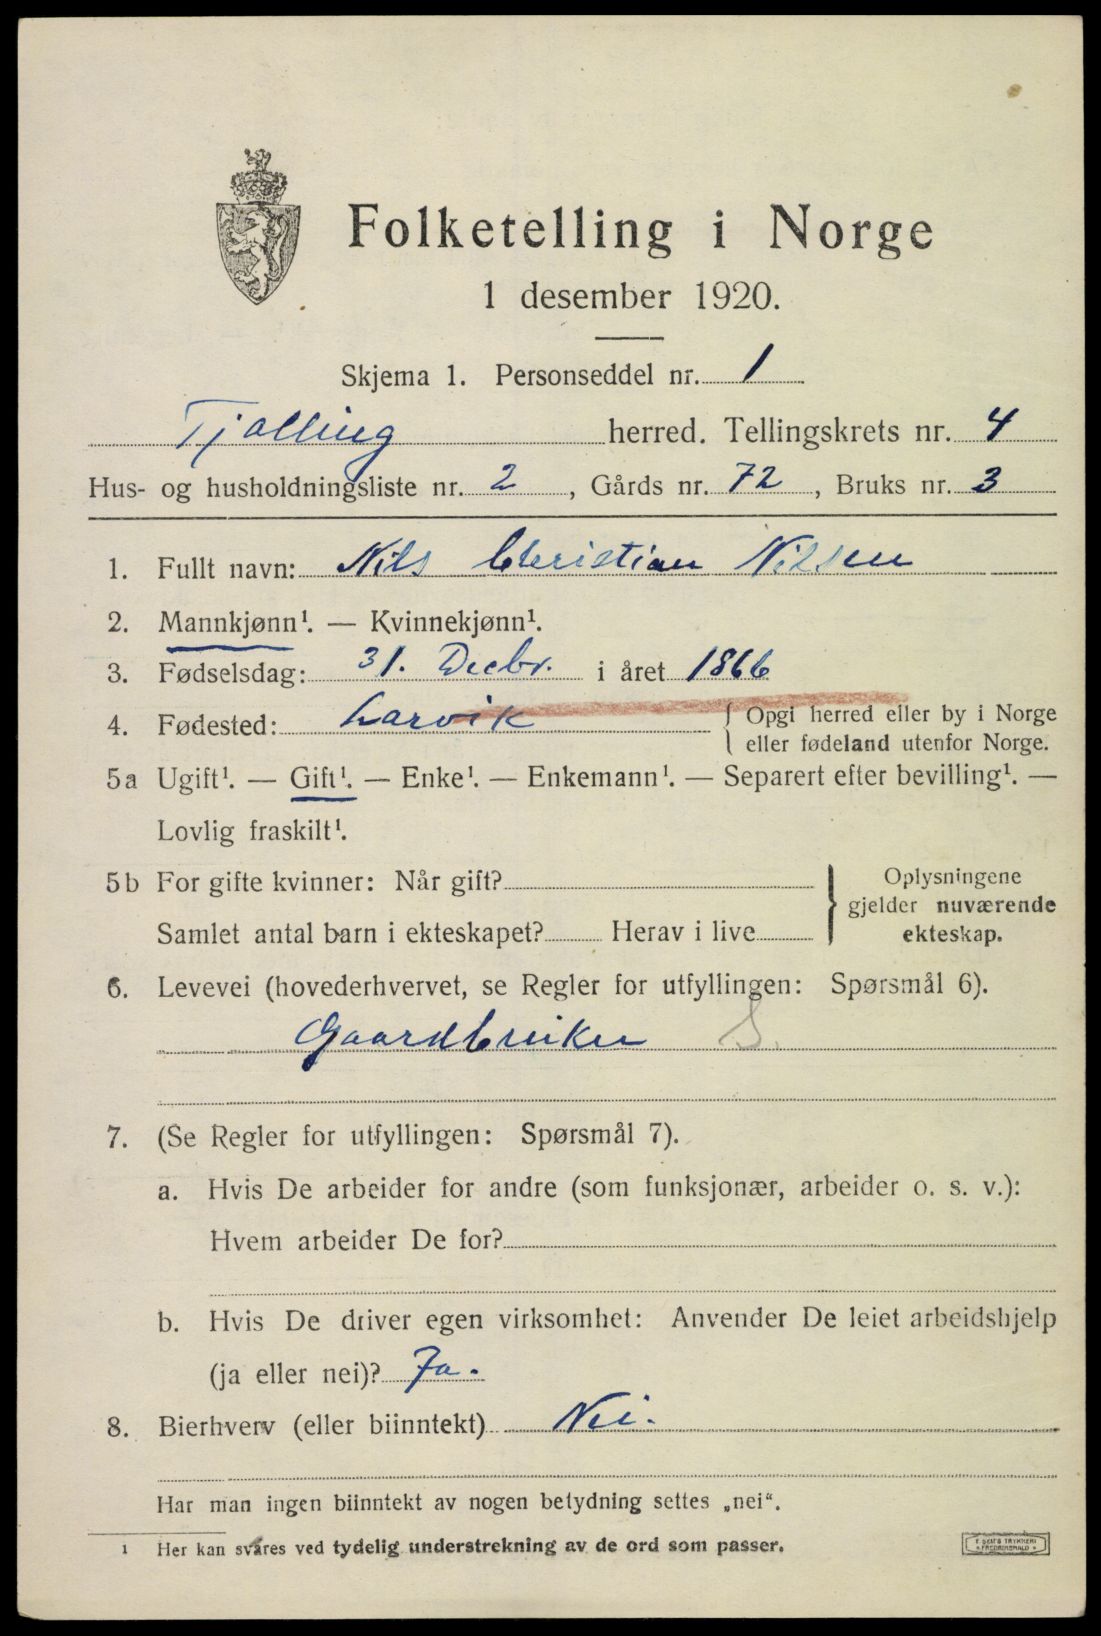 Folketelling i Norge
1 desember 1920.
Skjema 1. Personseddel nr. 1
Tjølling herred. Tellingskrets nr. 4
Hus- og husholdningsliste nr. 2, Gårds nr. 72, Bruks nr. 3
1. Fullt navn: Nils Christian Nilsen
2. Mannkjønn¹. — Kvinnekjønn¹.
3. Fødselsdag: 31. Decbr. i året 1866
4. Fødested: Larvik { Opgi herred eller by i Norge
eller fødeland utenfor Norge.
5a Ugift¹. — Gift¹. — Enke¹. — Enkemann¹. — Separert efter bevilling¹. —
Lovlig fraskilt¹.
5b For gifte kvinner: Når gift?
Samlet antal barn i ekteskapet? Herav i live
} Oplysningene
gjelder nuværende
ekteskap.
6. Levevei (hovederhvervet, se Regler for utfyllingen: Spørsmål 6).
Gaardbruker S.
7. (Se Regler for utfyllingen: Spørsmål 7).
a. Hvis De arbeider for andre (som funksjonær, arbeider o. s. v.):
Hvem arbeider De for?
b. Hvis De driver egen virksomhet: Anvender De leiet arbeidshjelp
(ja eller nei)? Ja.
8. Bierhverv (eller biinntekt) Nei.
Har man ingen biinntekt av nogen betydning settes „nei“.
¹ Her kan svares ved tydelig understrekning av de ord som passer.